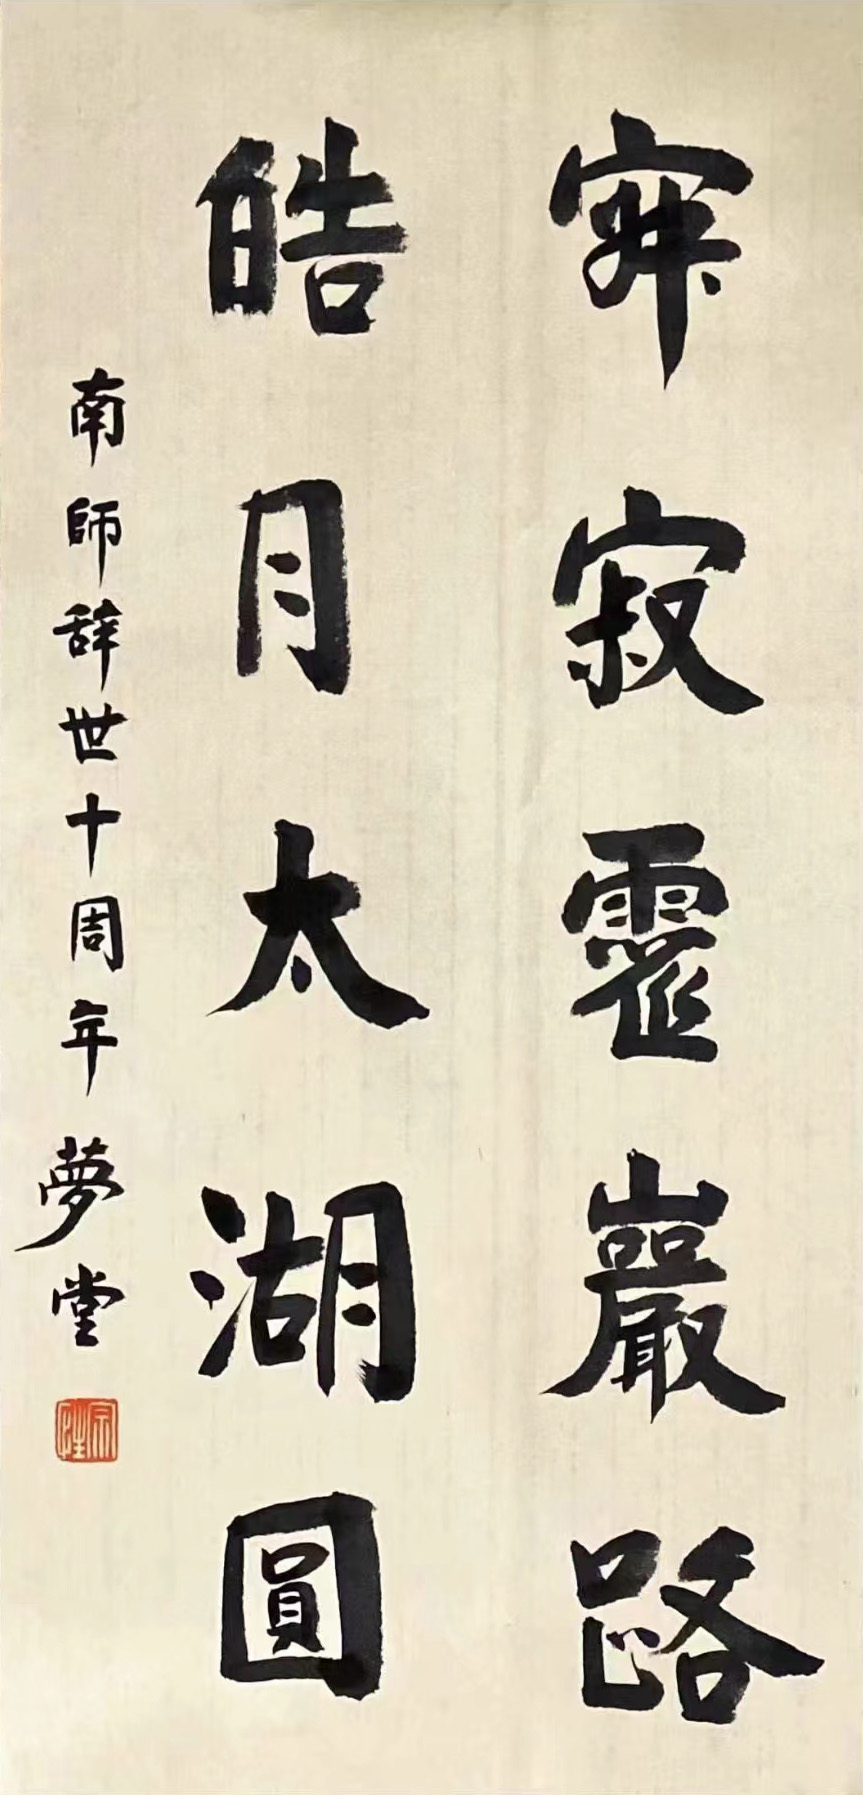 寂靈巖路
皓月太湖圓
南師辞世十周年 夢堂
宗性